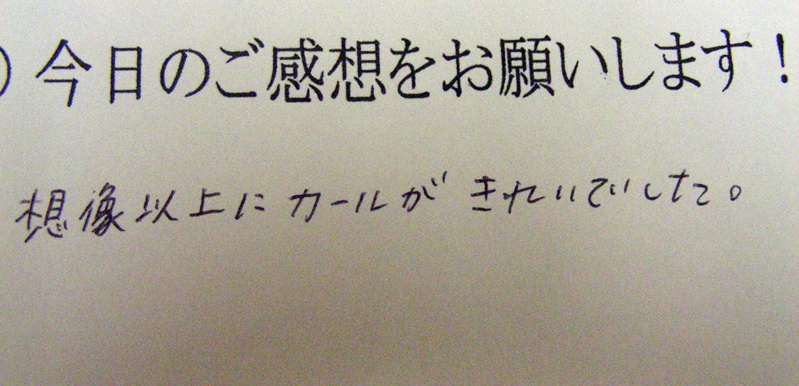 ）今日のご感想をお願いします！
想像以上にカールがきれいでした。